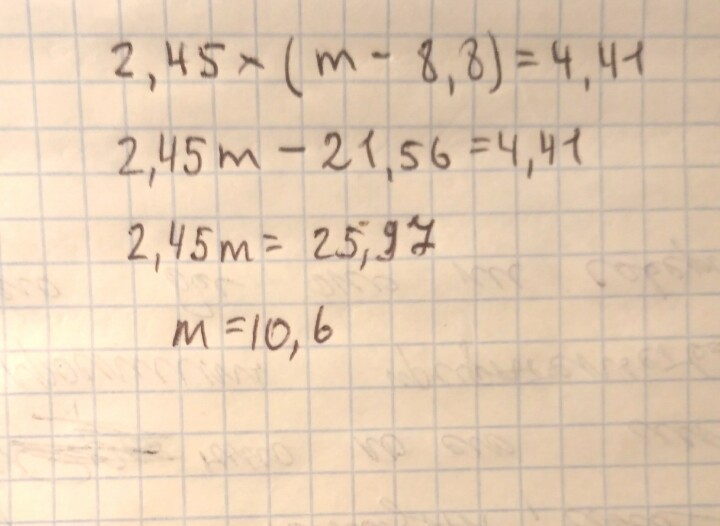 2,45 × (m - 8,8) = 4,41
2,45m - 21,56 = 4,41
2,45m = 25,97
m = 10,6